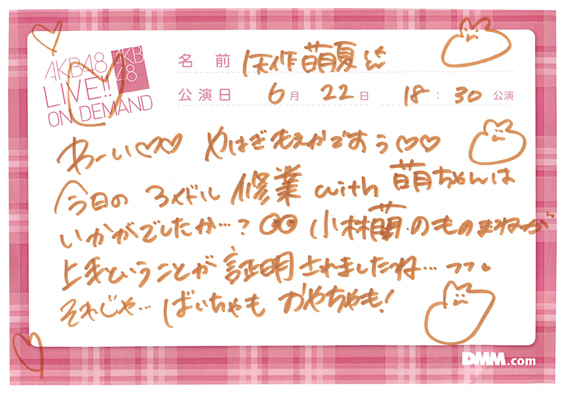 AKB48
LIVE!!
ON DEMAND
AKB
48
名前 矢作萌夏
公演日 6月 22日 18:30 公演
わーい♡♡ やはぎもえかですぅ♡♡
今日の 3メドル 修業 with 萌ちゃんは
いかがでしたか…? 小林蘭のものまねが
上手ということが 証明されましたね… フフ。
それじゃ… ばいちゃも かやちゃも!
DMM.com